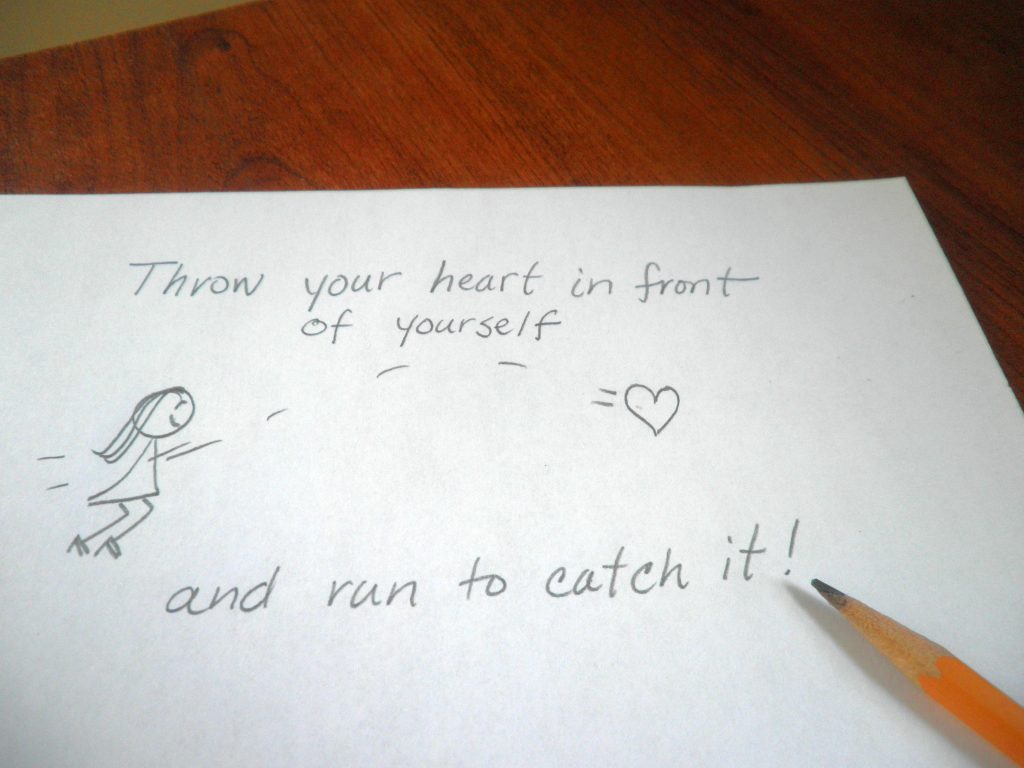 Throw your heart in front
of yourself
and run to catch it!